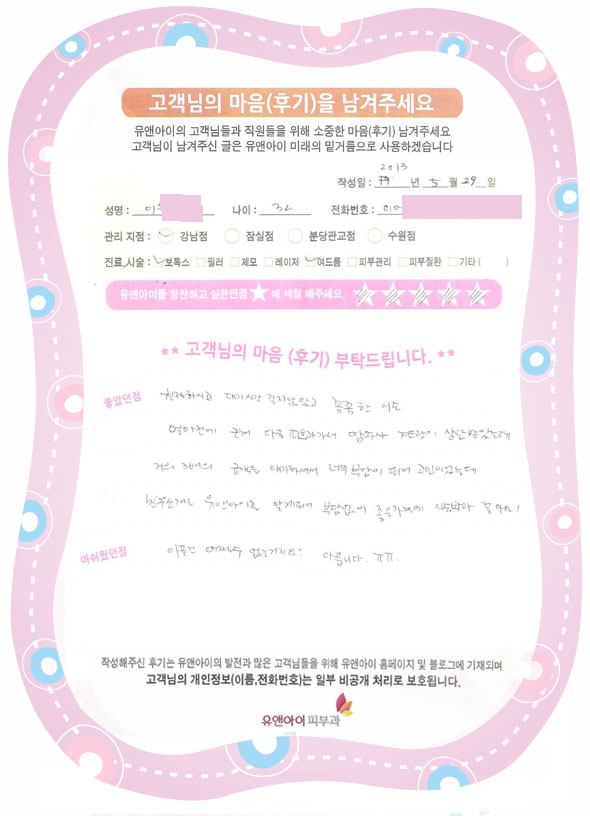 고객님의 마음(후기)을 남겨주세요
유앤아이의 고객님들과 직원들을 위해 소중한 마음(후기) 남겨주세요
고객님이 남겨주신 글은 유앤아이 미래의 밑거름으로 사용하겠습니다
2013
작성일 : 년 5 월 29 일
성명 : 이 나이 : 32 전화번호 : 010
관리 지점 : 강남점 잠실점 분당판교점 수원점
진료,시술 : 보톡스 필러 제모 레이저 여드름 피부관리 피부질환 기타 ( )
유앤아이를 칭찬하고 싶은만큼 ★ 에 색칠 해주세요.
** 고객님의 마음 (후기) 부탁드립니다. **
좋았던점 친절하시고 대기시간 길지않았고 꼼꼼한 시술.
얼마전에 다른 피부과가서 상담받았는데
거의 3배의 금액을 이야기하셔서 너무 부담이 되어 고민이었는데
친구소개로 유앤아이를 알게되어 부담없이 좋은가격에 시술받아 좋아요!
아쉬웠던점 아픈건 어쩔수 없는거지요? 아픕니다. ㅠㅠ.
작성해주신 후기는 유앤아이의 발전과 많은 고객님들을 위해 유앤아이 홈페이지 및 블로그에 기재되며
고객님의 개인정보(이름,전화번호)는 일부 비공개 처리로 보호됩니다.
유앤아이피부과